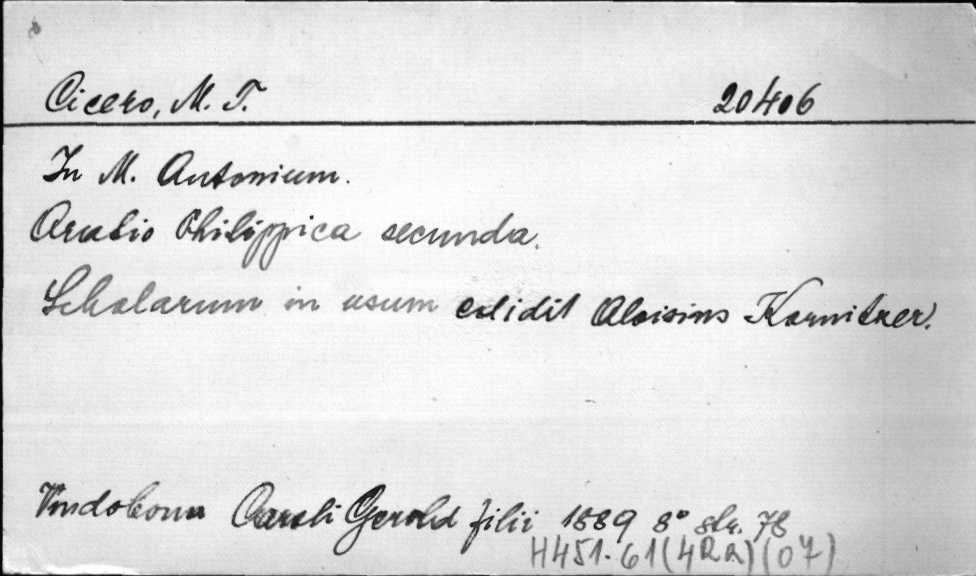 Cicero, M. T. 20406
In M. Antonium.
Oratio Philippica secunda.
Scholarum in usum edidit Aloisius Kornitzer.
Vindobona Caroli Gerold filii 1889 8° str. 78
H451.61(4Rz)(07)